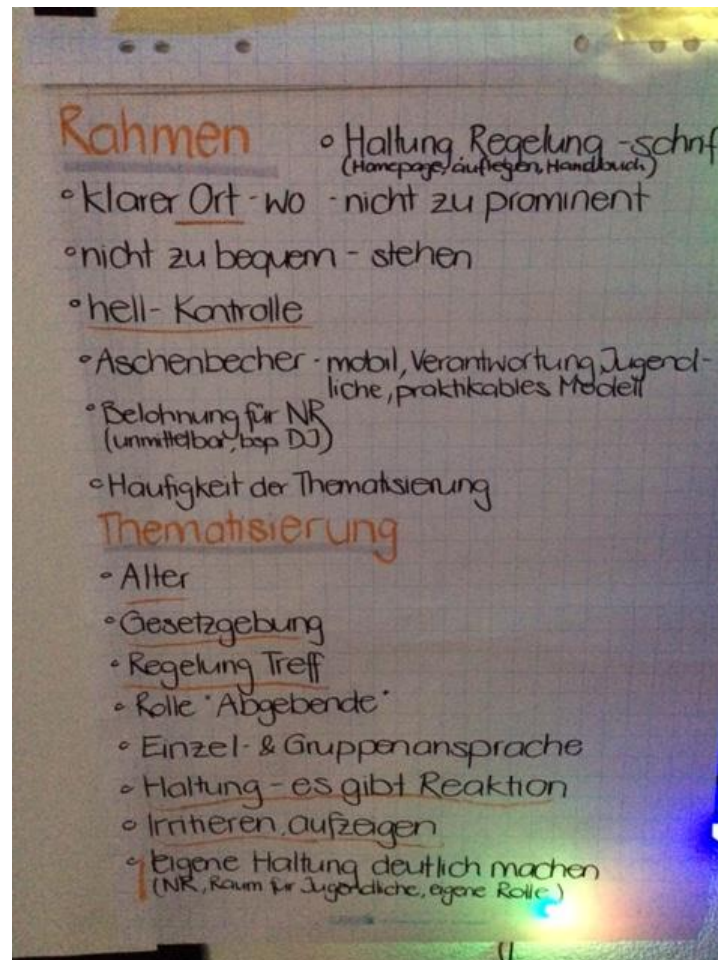 Rahmen
° Haltung Regelung - schrif
(Homepage, auflegen, Handbuch)
° klarer Ort - wo - nicht zu prominent
° nicht zu bequem - stehen
° hell - Kontrolle
° Aschenbecher - mobil, Verantwortung Jugend-
liche, praktikables Modell
° Belohnung für NR
(unmittelbar, bsp DJ)
° Häufigkeit der Thematisierung
Thematisierung
° Alter
° Gesetzgebung
° Regelung Treff
° Rolle "Abgebende"
° Einzel- & Gruppenansprache
° Haltung - es gibt Reaktion
° Irritieren, aufzeigen
° eigene Haltung deutlich machen
(NR, Raum für Jugendliche, eigene Rolle)